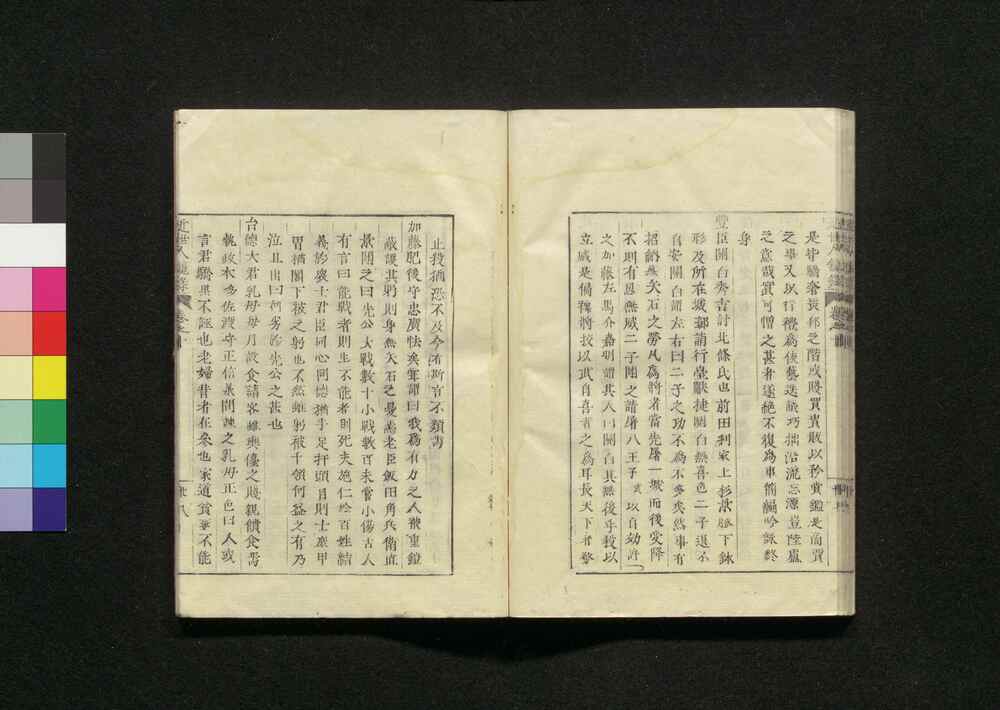 是皆驕奢喪邦之階或賂買貴敗以矜賞鑑是商賈
之事又以行穢爲後藝迭誠巧拙沿流忘源豈陸盧
之意哉實可憎之甚者遂絶不復爲事簡編吟詠終
身
豐臣關白秀吉討北條氏也前田利家上杉景勝下鉢
形及所在城鄙詣行臺獻捷關白無喜色二子退不
自安關白謂左右曰二子之功不爲不多矣然事有
招納無矢石之勞凡爲將者當先屠一城而後受降
不則有恩無威二子聞之請屠八王子 以自効許
之加藤左馬介嘉明謂其人曰關白其無後乎教以
立威是備
近世人鏡錄 卷之
止我猶恐不及今有斯言不類
加藤肥後守忠廣怯矣嘗謂曰我爲有力之人被重鎧
蔽護其躬則身無矢石之憂焉老臣飯田角兵衛直
景聞之曰先公大戰數十小戰數百未嘗小傷古人
有言曰能戰者則生不能者則死夫施仁於百姓結
義於衆士君臣同心同德猶手足扞頭目則士卒甲
冑猶閣下被之躬也不然雖躬被千領何益之有乃
泣且出曰何劣於先公之甚也
台德大君乳母每月設食請客雖輿儓之賤親饋食焉
執政本多佐渡守正信兼聞諫之乳母正色曰人或
言君驕果不誣也老婦昔者在參也家道貧窶不能
近世人鏡錄 卷之 廿八